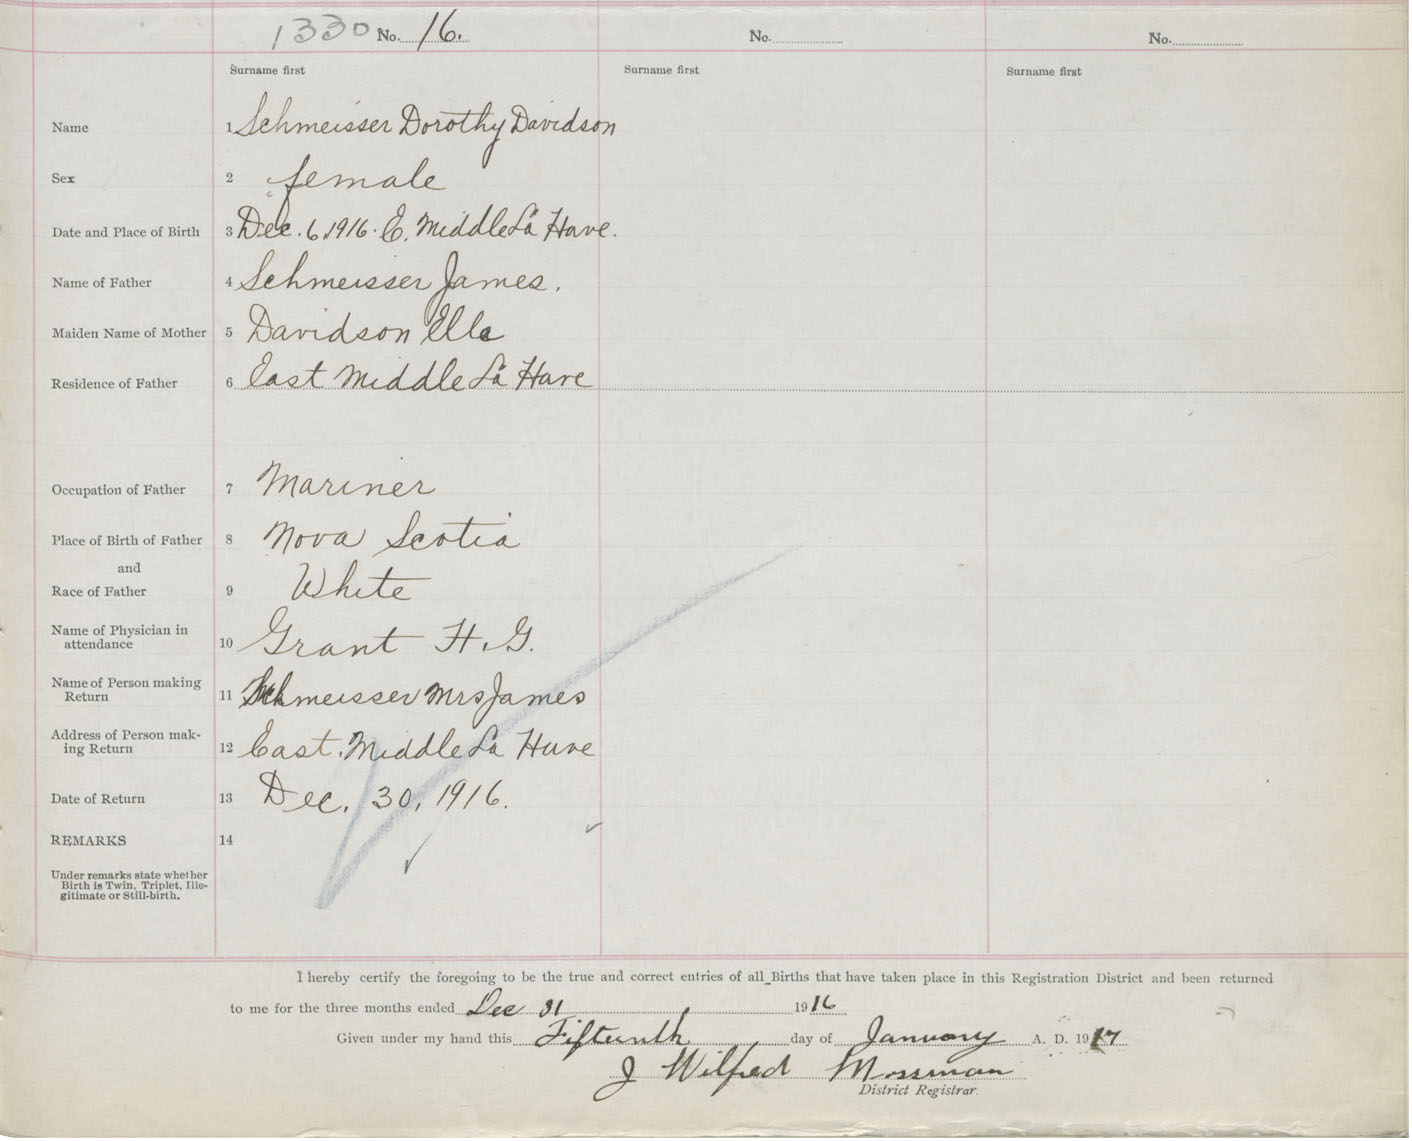 1330 No. 16. No. No.
Surname first Surname first Surname first
Name 1 Schmeisser Dorothy Davidson
Sex 2 female
Date and Place of Birth 3 Dec. 6, 1916. E. Middle La Have.
Name of Father 4 Schmeisser James.
Maiden Name of Mother 5 Davidson Ella
Residence of Father 6 East Middle La Have
Occupation of Father 7 Mariner
Place of Birth of Father 8 Nova Scotia
and
Race of Father 9 White
Name of Physician in
attendance 10 Grant H. G.
Name of Person making
Return 11 Schmeisser Mrs James
Address of Person mak-
ing Return 12 East. Middle La Have
Date of Return 13 Dec. 30, 1916.
REMARKS 14
Under remarks state whether
Birth is Twin, Triplet, Ille-
gitimate or Still-birth.
I hereby certify the foregoing to be the true and correct entries of all Births that have taken place in this Registration District and been returned
to me for the three months ended Dec 31 1916
Given under my hand this Fifteenth day of January A. D. 1917
J Wilfred Mossman
District Registrar.